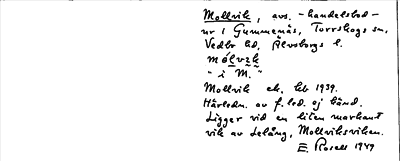 Mollvik, avs. - handelsbod -
nr 1 Gummenäs, Torrskogs sn,
Vedbo hd, Älvsborgs l.
mólvɪk
"i M."
Mollvik ek. kb 1939.
Härledn. av f. led. ej känd.
Ligger vid en liten markant
vik av Lelång, Mollviksviken.
E. Rosell 1949